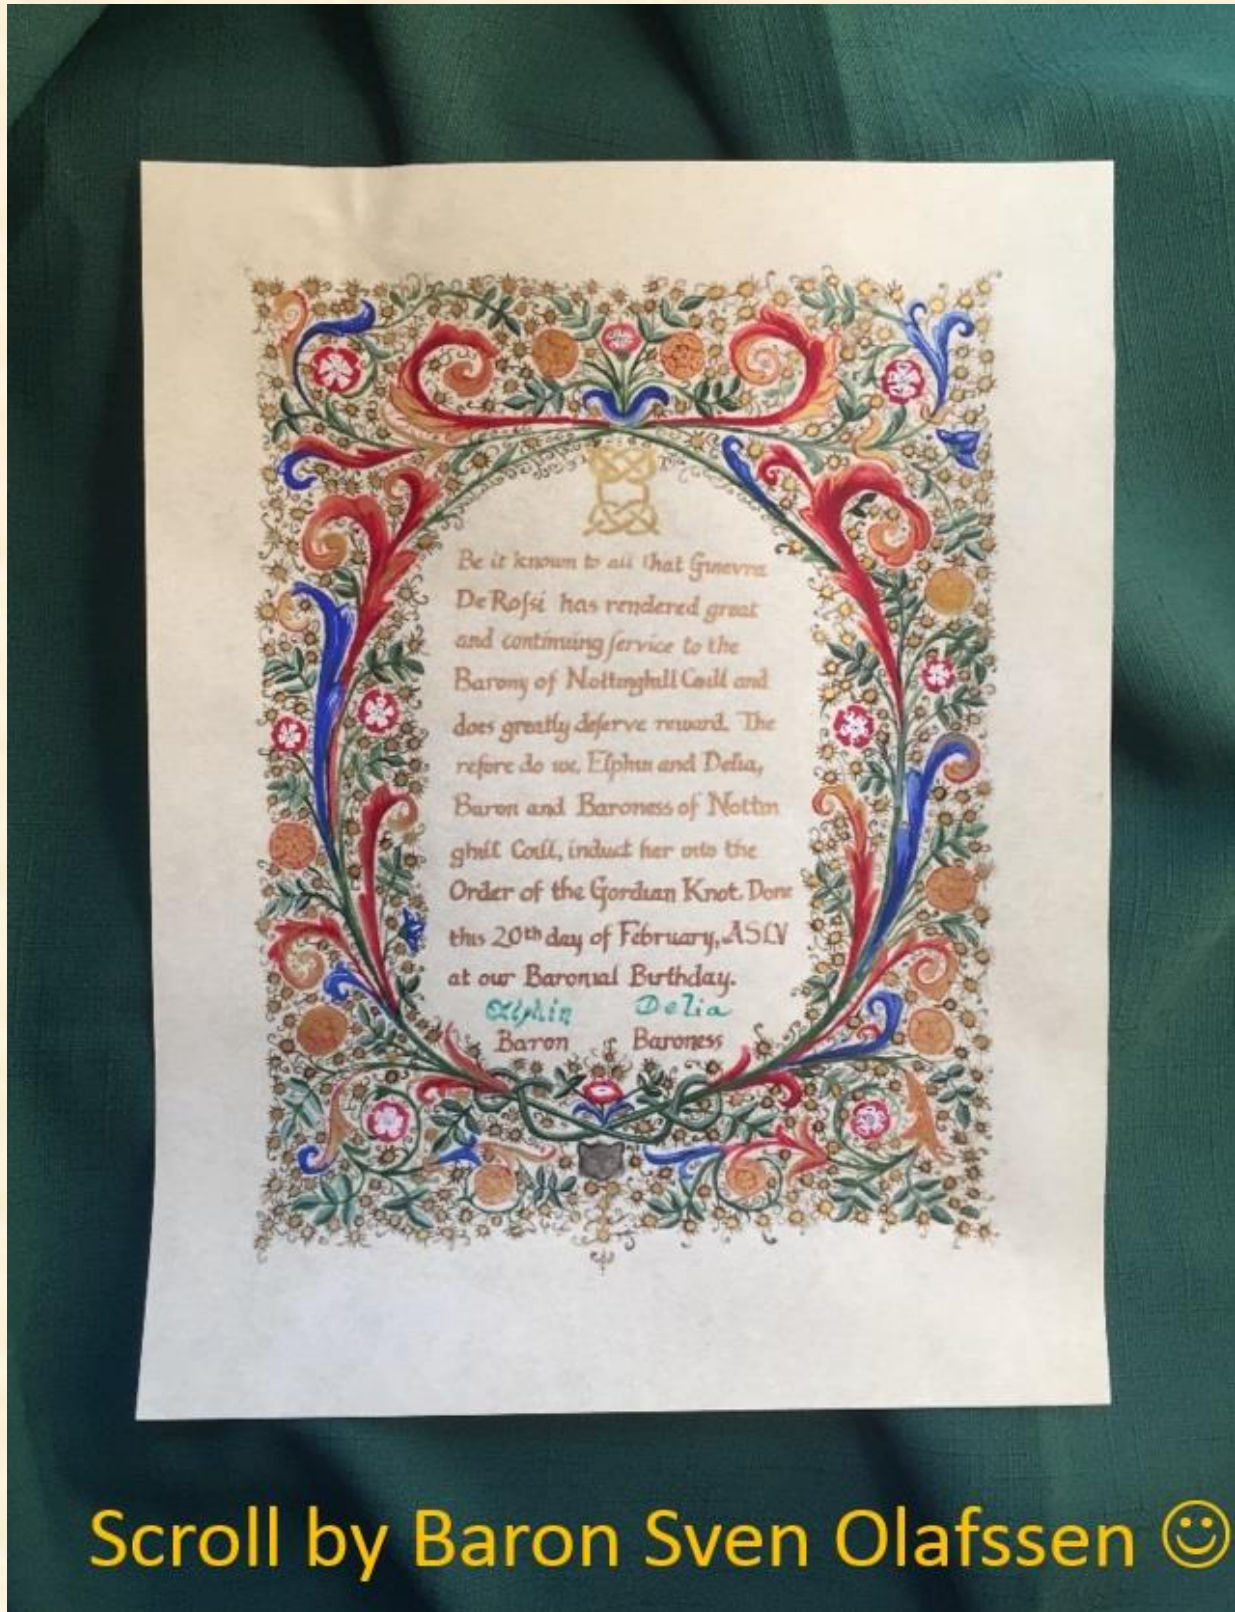 Be it known to all that Ginevra
De Roſsi has rendered great
and continuing ſervice to the
Barony of Nottinghill Coill and
does greatly deſerve reward. The
refore do we, Elphin and Delia,
Baron and Baroness of Nottin
ghill Coill, induct her into the
Order of the Gordian Knot. Done
this 20th day of February, AS LV
at our Baronial Birthday.
Elphin Delia
Baron Baroness
Scroll by Baron Sven Olafssen ☺